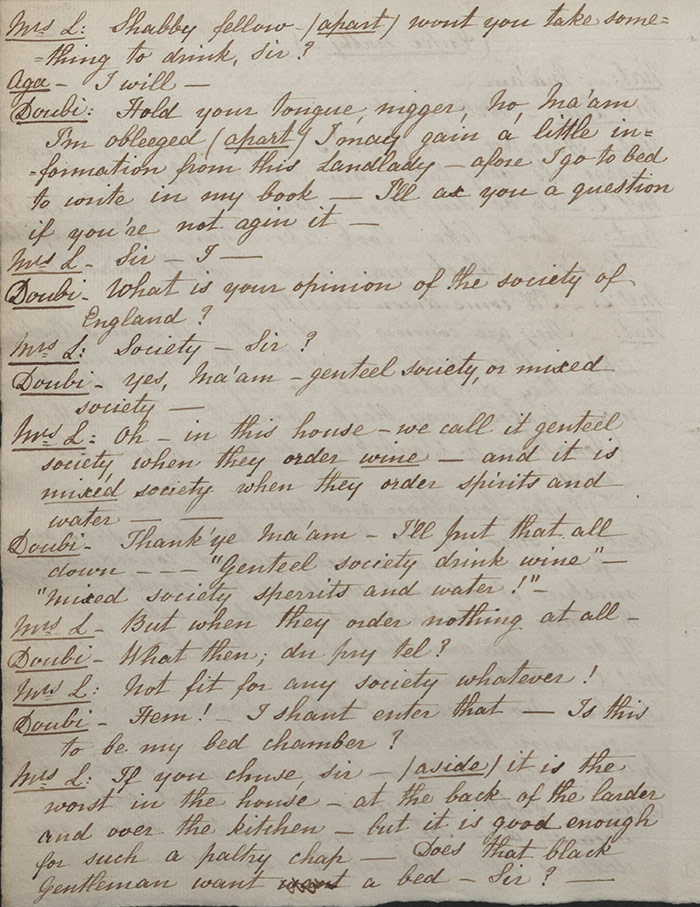 Mrs L: Shabby fellow - (apart) wont you take some=
=thing to drink, Sir?
Aga - I will -
Doubi: Hold your tongue, nigger, No, Ma'am
I'm obleeged (apart) I may gain a little in=
=formation from this Landlady - afore I go to bed
to write in my book - I'll ax you a question
if you're not agin it -
Mrs L - Sir - I -
Doubi - What is your opinion of the society of
England?
Mrs L: Society - Sir?
Doubi - yes, Ma'am - genteel society, or mixed
society -
Mrs L: Oh - in this house - we call it genteel
society when they order wine - and it is
mixed society when they order spirits and
water - -
Doubi - Thank'ye Ma'am - I'll put that all
down - - - "Genteel society drink wine" -
"Mixed society sperrits and water!" -
Mrs L - But when they order nothing at all -
Doubi - What then; du pry tel?
Mrs L: Not fit for any society whatever!
Doubi - Hem! - I shant enter that - Is this
to be my bed chamber?
Mrs L: If you chuse, sir - (aside) it is the
worst in the house - at the back of the larder
and over the kitchen - but it is good enough
for such a paltry chap - Does that black
Gentleman want a bed - Sir? -